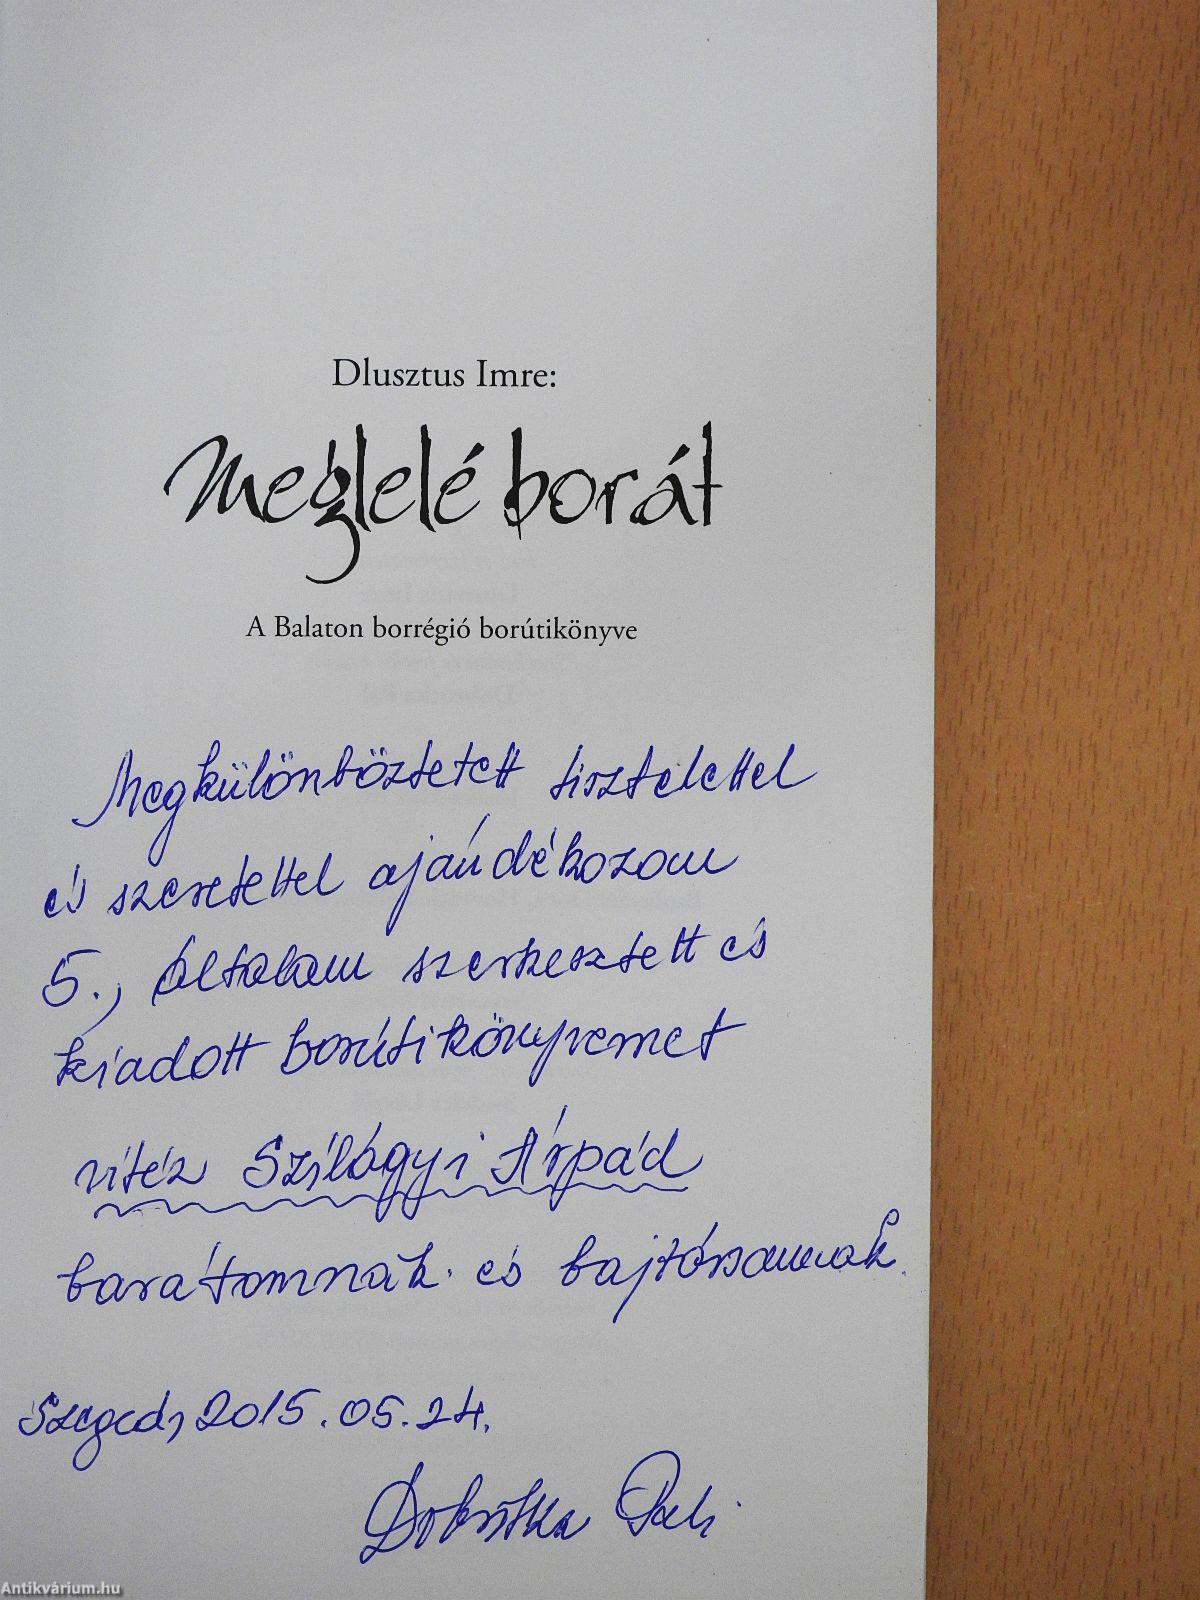 Dlusztus Imre:
Meglelé borát
A Balaton borrégió borútikönyve
Megkülönböztetett tisztelettel
és szeretettel ajándékozom
5., általam szerkesztett és
kiadott borútikönyvemet
vitéz Szilágyi Árpád
barátomnak és bajtársamnak.
Szeged, 2015.05.24.
Dobrotka Pali
Antikvárium.hu